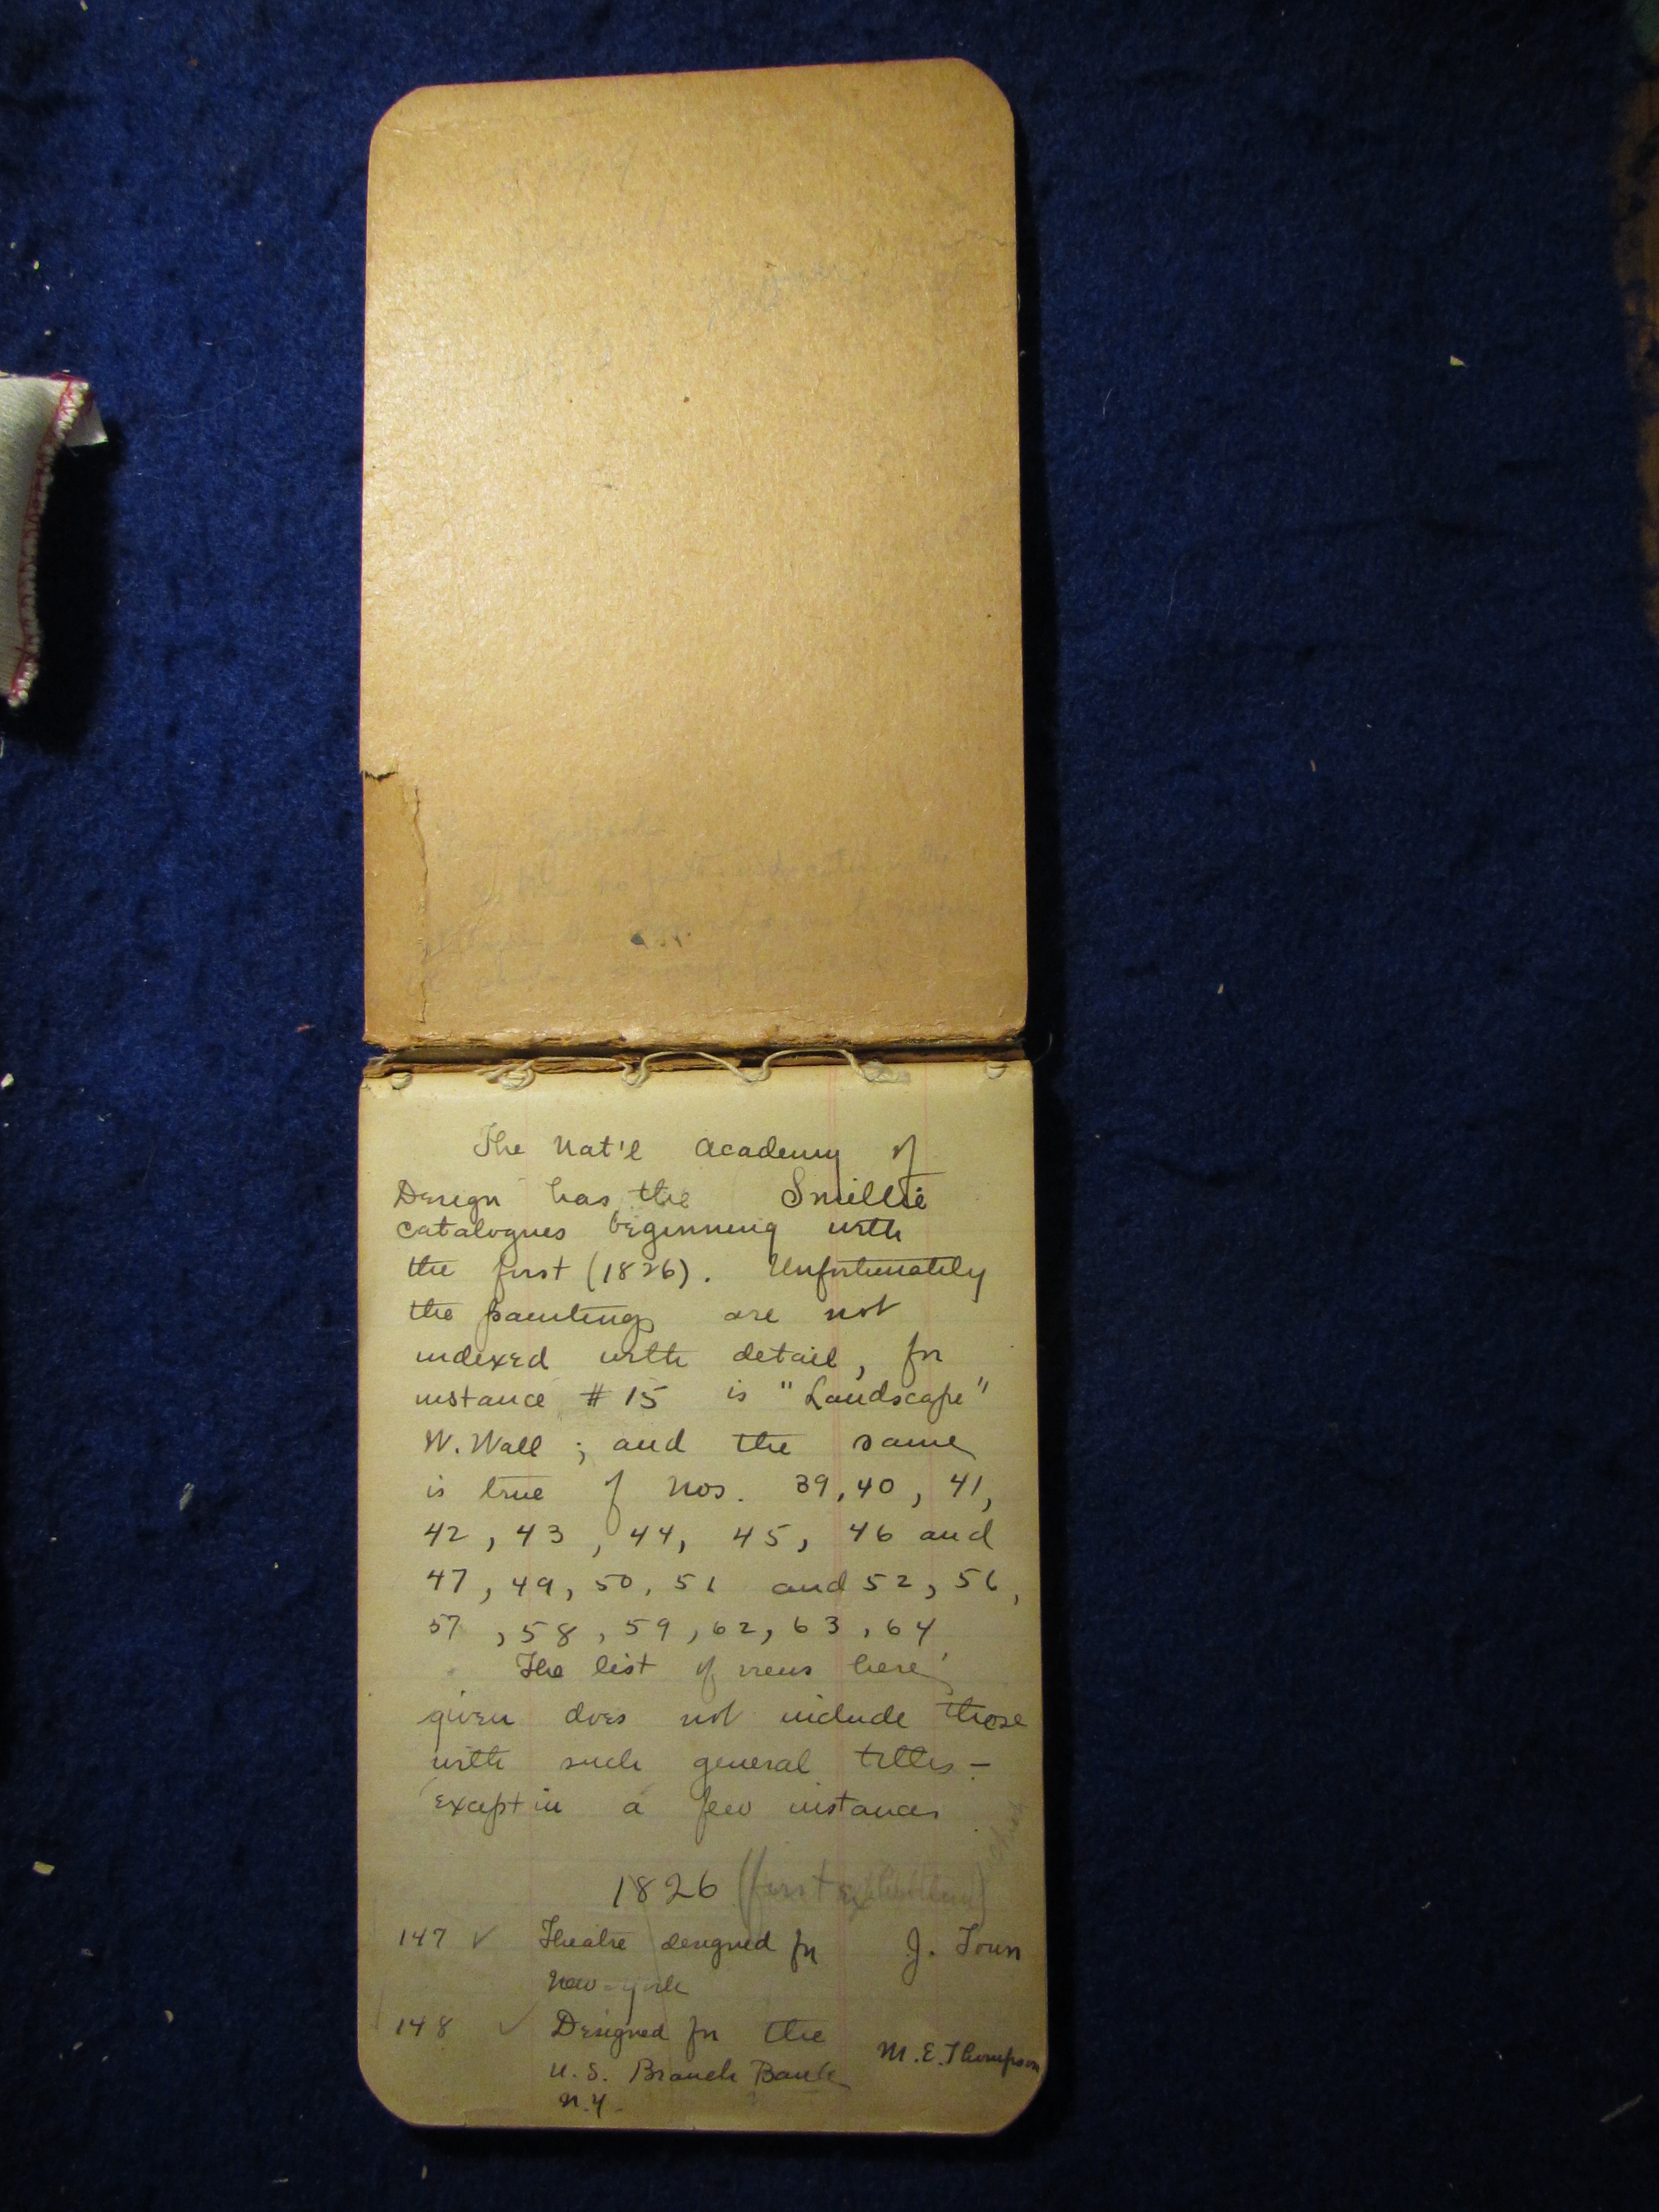 The Nat'l Academy of
Design has the Smillie
catalogues beginning with
the first (1826). Unfortunately
the paintings are not
indexed with detail, for
instance # 15 is "Landscape"
W. Wall ; and the same
is true of Nos. 39, 40, 41,
42, 43, 44, 45, 46 and
47, 49, 50, 51 and 52, 56,
57, 58, 59, 62, 63, 64
The list of views here
given does not include those
with such general titles -
except in a few instances
1826 (first exhibition)
147 ✓ Theatre designed for J. Town
New-York
148 ✓ Designed for the M. E. Thompson
U. S. Branch Bank
N.Y.